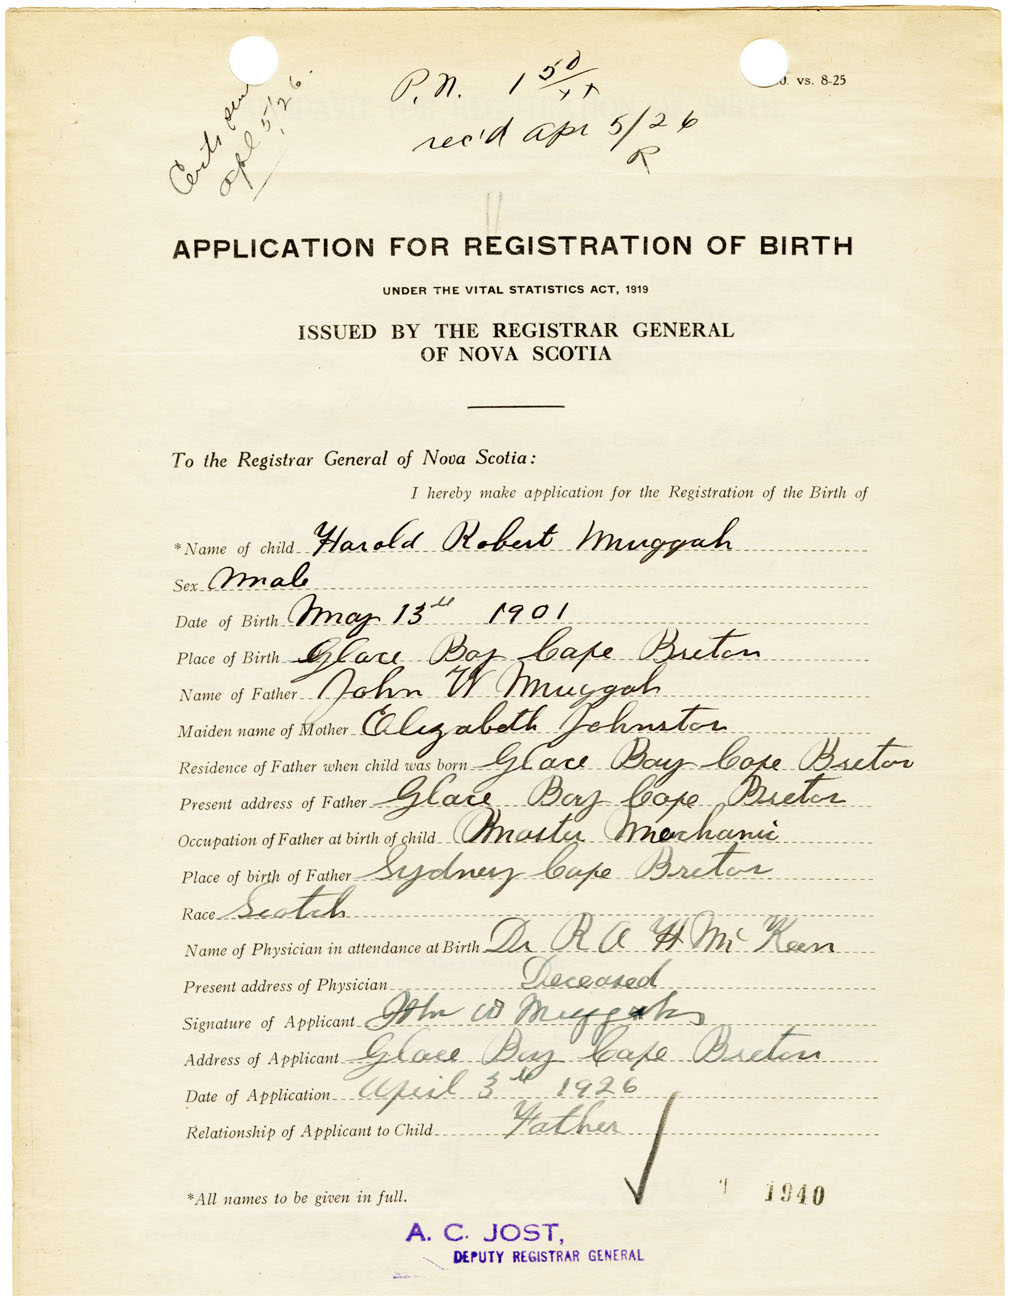 P. N. 1 50/xx
D. vs. 8-25
Certs sen
apl 5/26.
rec'd apr 5/26
R
APPLICATION FOR REGISTRATION OF BIRTH
UNDER THE VITAL STATISTICS ACT, 1919
ISSUED BY THE REGISTRAR GENERAL
OF NOVA SCOTIA
To the Registrar General of Nova Scotia:
I hereby make application for the Registration of the Birth of
*Name of child Harold Robert Muggah
Sex Male
Date of Birth May 13th 1901
Place of Birth Glace Bay Cape Breton
Name of Father John W Muggah
Maiden name of Mother Elizabeth Johnston
Residence of Father when child was born Glace Bay Cape Breton
Present address of Father Glace Bay Cape Breton
Occupation of Father at birth of child Master Mechanic
Place of birth of Father Sydney Cape Breton
Race Scotch
Name of Physician in attendance at Birth Dr R A H McKeen
Present address of Physician Deceased
Signature of Applicant John W Muggah
Address of Applicant Glace Bay Cape Breton
Date of Application April 3th 1926
Relationship of Applicant to Child Father
*All names to be given in full.
1940
A. C. JOST,
DEPUTY REGISTRAR GENERAL